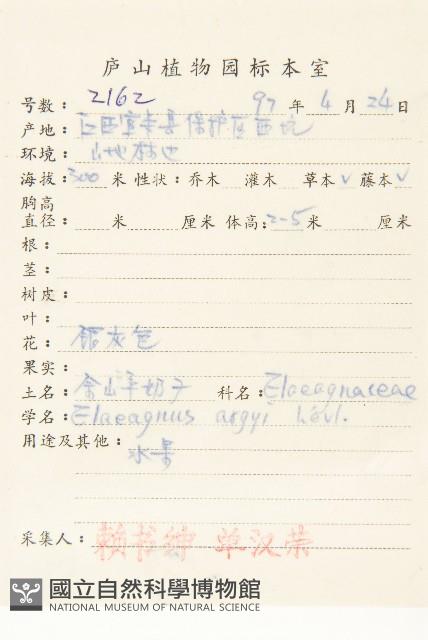 庐山植物园标本室
号数: 2162 97 年 4 月 24 日
产地: 江西宜丰县保护区西坑
环境: 山地林地
海拔: 300 米 性状: 乔木 灌木 草本 √ 藤本 √
胸高
直径: 米 厘米 体高: 2-5 米 厘米
根:
茎:
树皮:
叶:
花: 银灰色
果实:
土名: 佘山羊奶子 科名: Elaeagnaceae
学名: Elaeagnus argyi Lévl.
用途及其他:
水果
采集人: 赖书绅 单汉荣
國立自然科學博物館
NATIONAL MUSEUM OF NATURAL SCIENCE